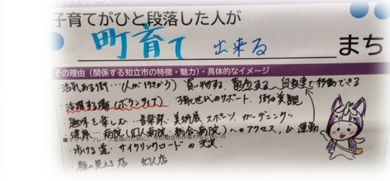 子育てがひと段落した人が
町育て 出来る まち
その理由（関係する知立市の特徴・魅力）・具体的なイメージ
活気ある街…(人が行きかう) 買い物する、散歩する
活躍する場（ボランティア） 子育て世代のサポート、街の美観
趣味を楽しむ… 音楽祭 美術展 スポーツ ガーデニング
健康… 病院（個人病院・総合病院）へのアクセス、運動
歩ける道 サイクリングロードの充実
顔の見える店 個人店